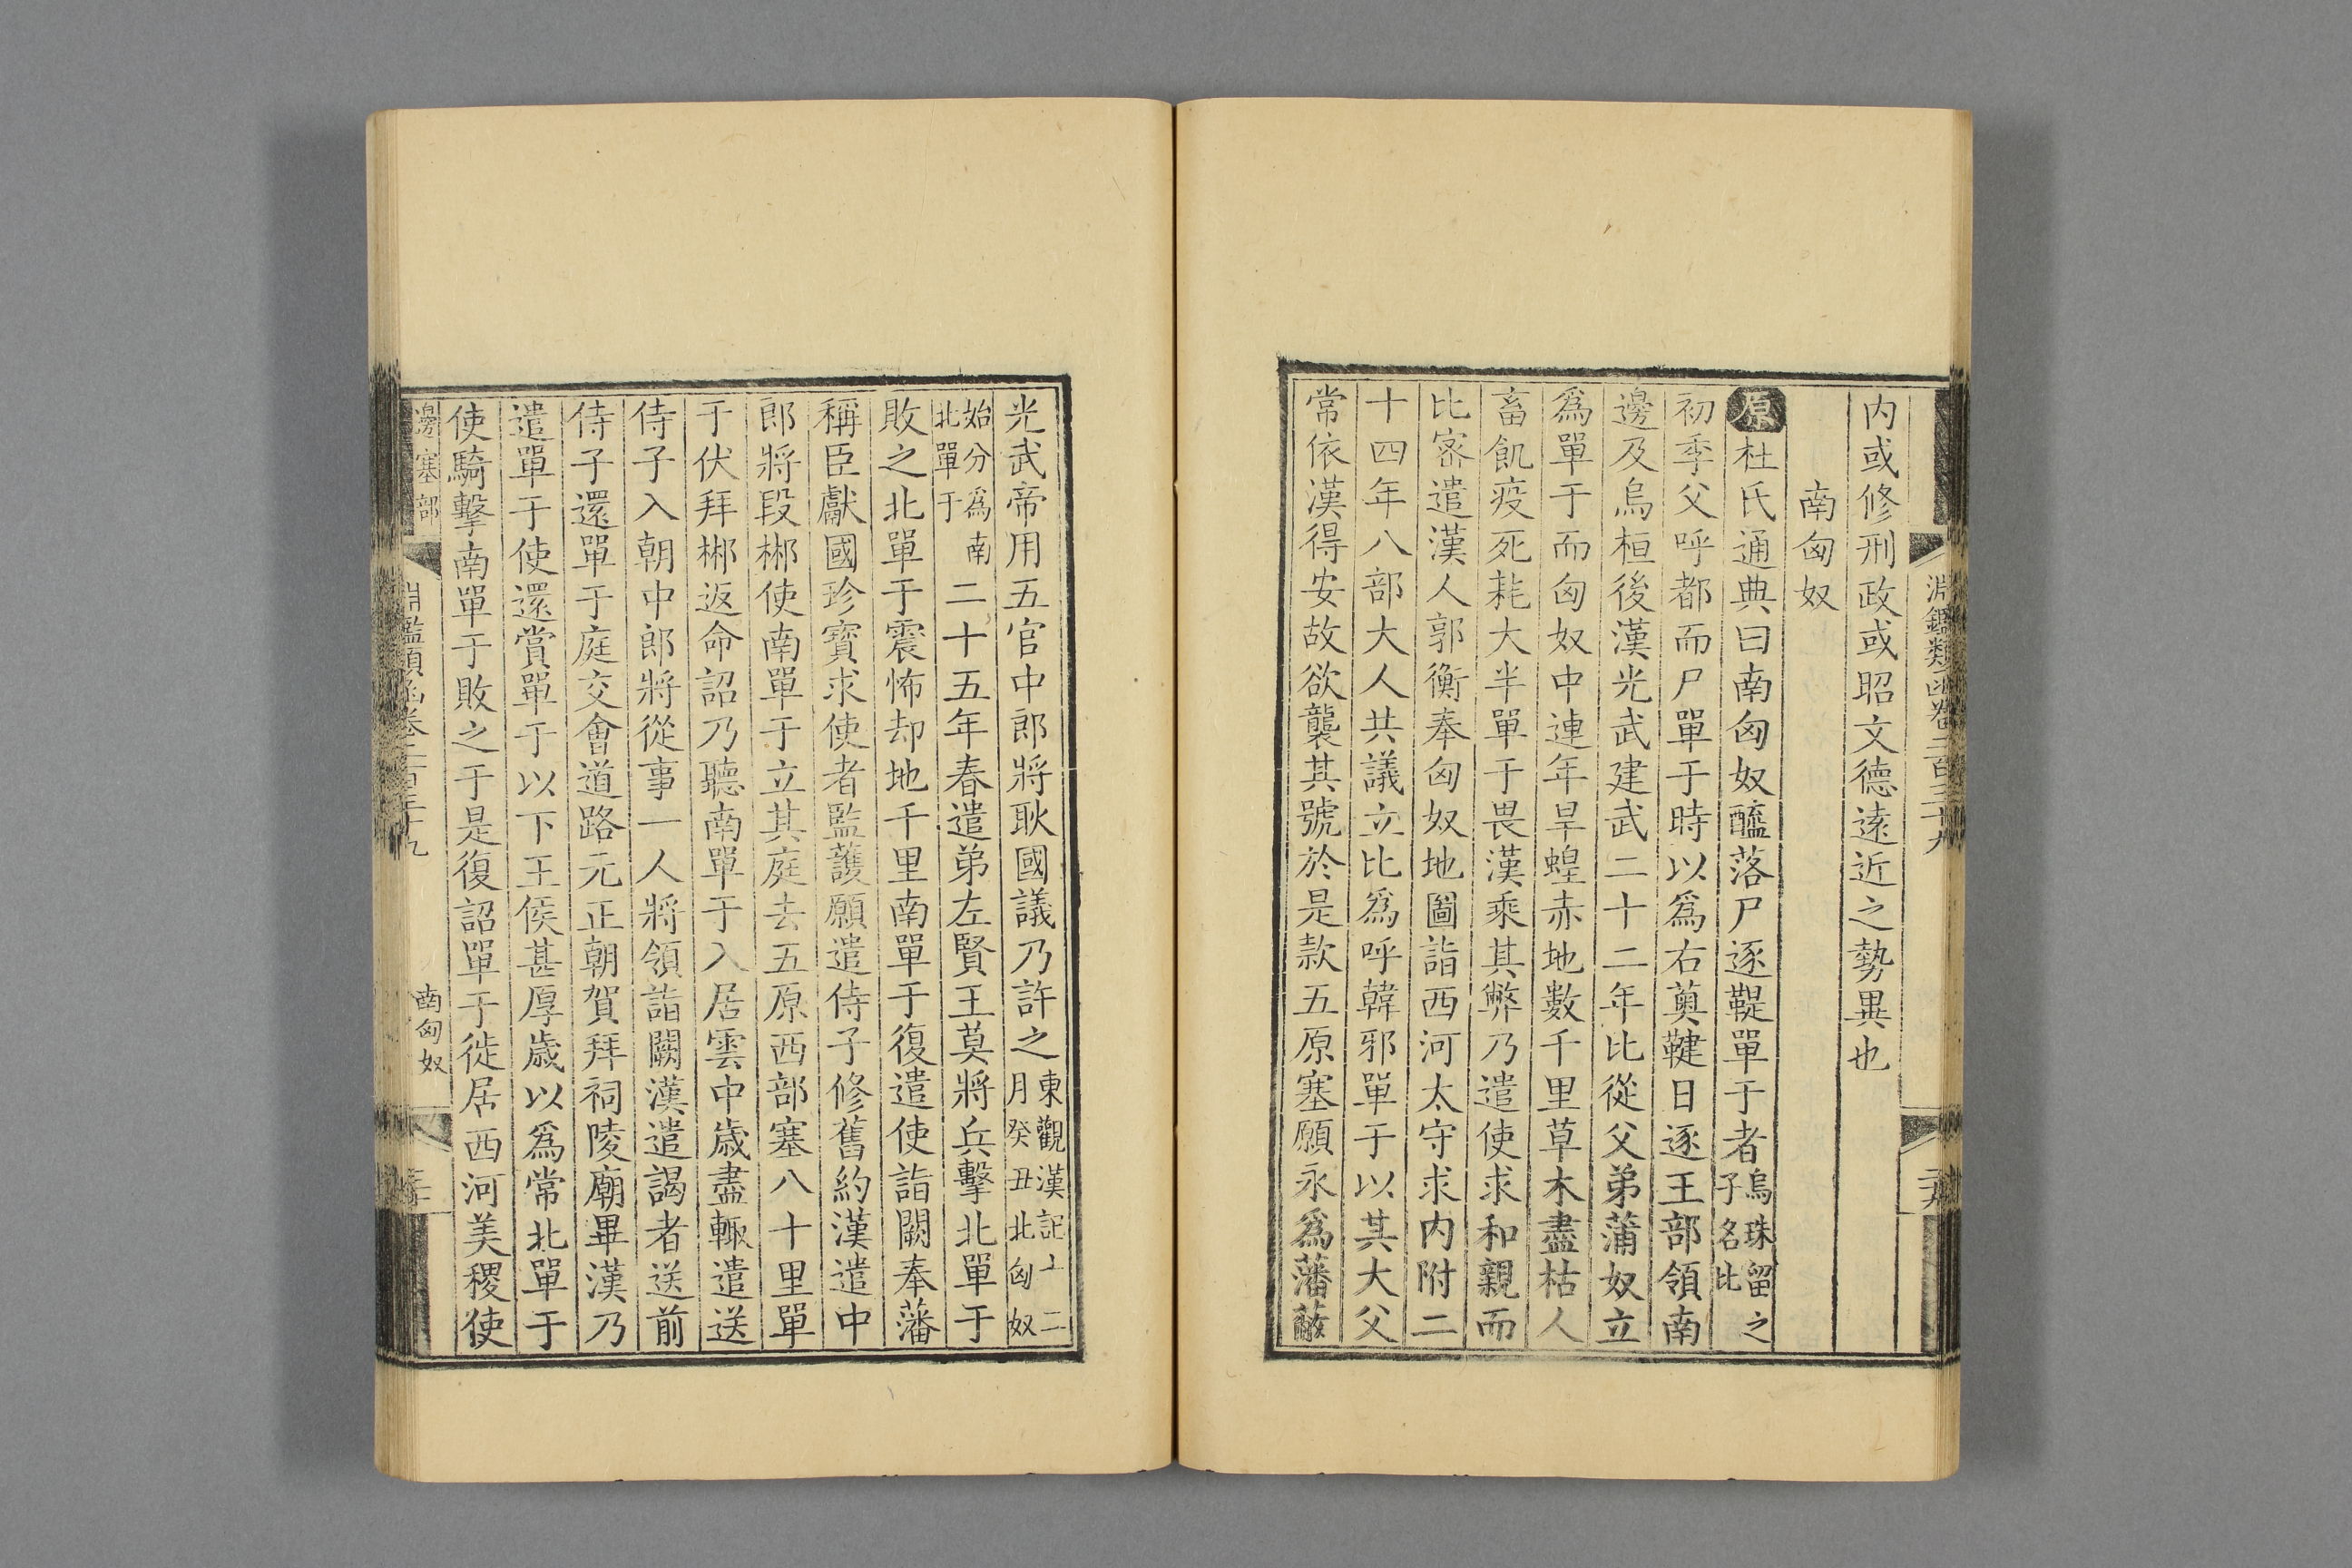 淵鑑類函卷二百三十九
內或修刑政或昭文德遠近之勢異也
南匈奴
原杜氏通典曰南匈奴醢落尸逐鞮單于者烏珠留之子名比
初季父呼都而尸單于時以爲右薁鞬日逐王部領南
邊及烏桓後漢光武建武二十二年比從父弟蒲奴立
爲單于而匈奴中連年旱蝗赤地數千里草木盡枯人
畜飢疫死耗大半單于畏漢乘其弊乃遣使求和親而
比密遣漢人郭衡奉匈奴地圖詣西河太守求內附二
十四年八部大人共議立比爲呼韓邪單于以其大父
常依漢得安故欲襲其號於是款五原塞願永爲藩蔽
光武帝用五官中郎將耿國議乃許之東觀漢記十二月癸丑北匈奴
始分爲南北單于二十五年春遣弟左賢王莫將兵擊北單于
敗之北單于震怖却地千里南單于復遣使詣闕奉藩
稱臣獻國珍寶求使者監護願遣侍子修舊約漢遣中
郎將段郴使南單于立其庭去五原西部塞八十里單
于伏拜郴返命詔乃聽南單于入居雲中歲盡輒遣送
侍子入朝中郎將從事一人將領詣闕漢遣謁者送前
侍子還單于庭交會道路元正朝賀拜祠陵廟畢漢乃
遣單于使還賞單于以下王侯甚厚歲以爲常北單于
使騎擊南單于敗之于是復詔單于徙居西河美稷使
邊塞部
淵鑑類函卷二百三十九
南匈奴